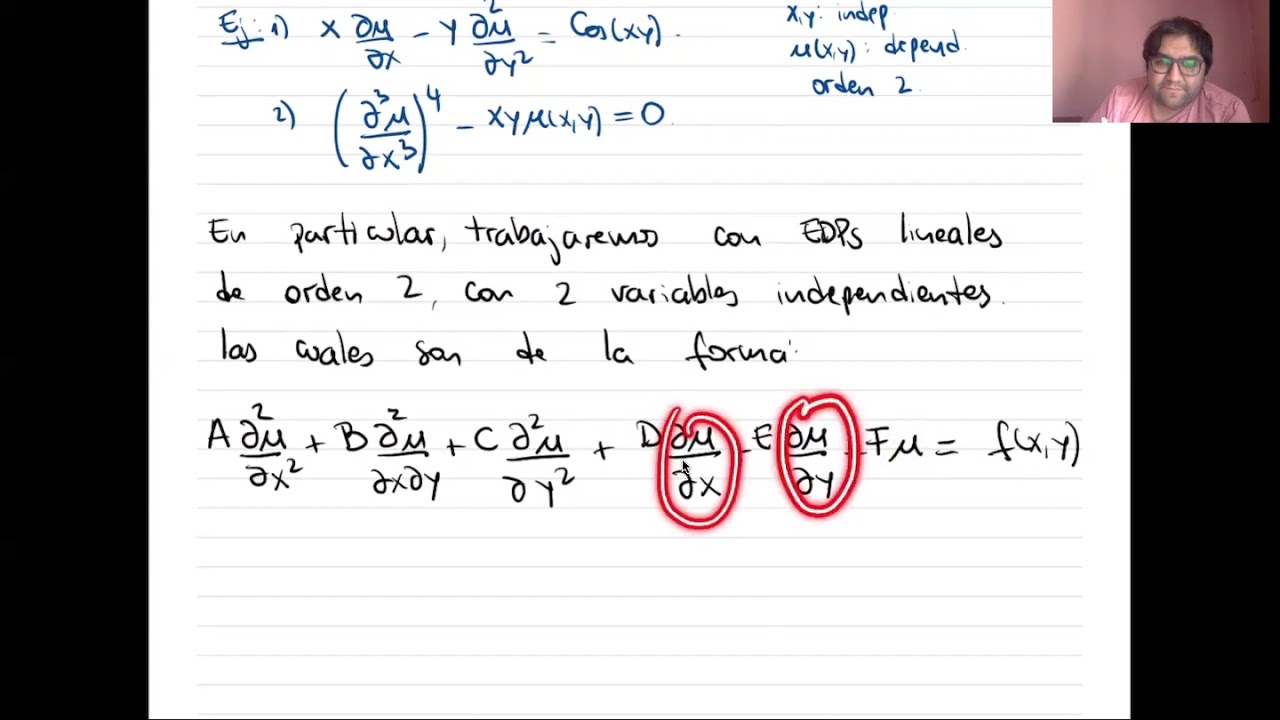 Ej: 1) x ∂μ/∂x - y ∂²μ/∂y² = Cos(xy).
x,y: indep.
μ(x,y): depend.
orden 2.
2) (∂³μ/∂x³)⁴ - xyμ(x,y) = 0.
En particular, trabajaremos con EDPs lineales
de orden 2, con 2 variables independientes.
las cuales son de la forma:
A ∂²μ/∂x² + B ∂²μ/∂x∂y + C ∂²μ/∂y² + D ∂μ/∂x - E ∂μ/∂y - Fμ = f(x,y)